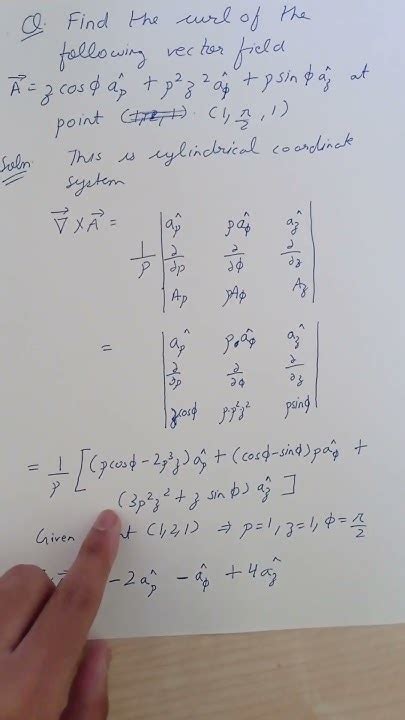 Q. Find the curl of the
following vector field
A⃗ = z cosϕ âρ + ρ²z² âϕ + ρ sinϕ âz at
point (1, π/2, 1)
Soln. This is cylindrical coordinate
system
∇⃗ × A⃗ =
1/ρ | âρ ρâϕ âz |
| ∂/∂ρ ∂/∂ϕ ∂/∂z |
| Aρ ρAϕ Az |
= | âρ ρ.âϕ âz |
| ∂/∂ρ ∂/∂ϕ ∂/∂z |
| z cosϕ ρ.ρ²z² ρ sinϕ |
= 1/ρ [ (ρ cosϕ - 2ρ³z) âρ + (cosϕ - sinϕ) ρâϕ +
(3ρ²z² + z sinϕ) âz ]
Given (1,2,1) ⇒ ρ=1, z=1, ϕ=π/2
-2âρ - âϕ + 4âz